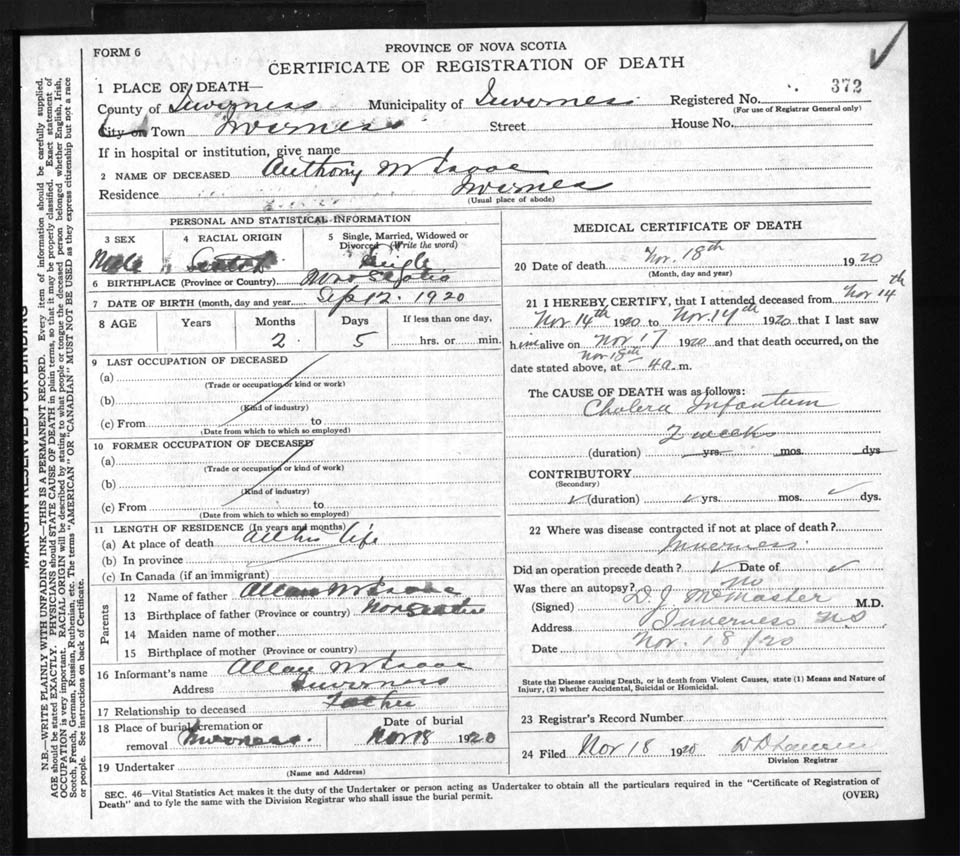 FORM 6
PROVINCE OF NOVA SCOTIA
CERTIFICATE OF REGISTRATION OF DEATH
1 PLACE OF DEATH—
County of Inverness Municipality of Inverness Registered No. 372
(For use of Registrar General only)
City or Town Inverness Street House No.
If in hospital or institution, give name
2 NAME OF DECEASED Anthony McIsaac
Residence Inverness
(Usual place of abode)
PERSONAL AND STATISTICAL INFORMATION
3 SEX 4 RACIAL ORIGIN 5 Single, Married, Widowed or Divorced (Write the word)
Male Scotch Single
6 BIRTHPLACE (Province or Country) Nova Scotia
7 DATE OF BIRTH (month, day and year) Sep 12. 1920
8 AGE Years Months Days If less than one day,
2 5 hrs. or min.
9 LAST OCCUPATION OF DECEASED
(a)
(Trade or occupation or kind or work)
(b)
(Kind of industry)
(c) From to
(Date from which to which so employed)
10 FORMER OCCUPATION OF DECEASED
(a)
(Trade or occupation or kind of work)
(b)
(Kind of industry)
(c) From to
(Date from which to which so employed)
11 LENGTH OF RESIDENCE (In years and months)
(a) At place of death All his life
(b) In province
(c) In Canada (if an immigrant)
Parents
12 Name of father Allan McIsaac
13 Birthplace of father (Province or country) Nova Scotia
14 Maiden name of mother
15 Birthplace of mother (Province or country)
16 Informant's name Allan McIsaac
Address Inverness
17 Relationship to deceased Father
18 Place of burial, cremation or removal Inverness. Date of burial Nov 18 1920
19 Undertaker
(Name and Address)
MEDICAL CERTIFICATE OF DEATH
20 Date of death Nov. 18th 1920
(Month, day and year)
21 I HEREBY CERTIFY, that I attended deceased from Nov 14th
Nov 14th 1920 to Nov 17th 1920 that I last saw
him alive on Nov 17 1920 and that death occurred, on
Nov 18th
date stated above, at 4 a. m.
The CAUSE OF DEATH was as follows:
Cholera Infantum
2 weeks
(duration) yrs. mos. dys
CONTRIBUTORY
(Secondary)
(duration) yrs. mos. dys.
22 Where was disease contracted if not at place of death?
Inverness
Did an operation precede death? Date of
Was there an autopsy? No
(Signed) D. J. McMaster M.D.
Address Inverness N S
Date Nov. 18/20
State the Disease causing Death, or in death from Violent Causes, state (1) Means and Nature of Injury, (2) whether Accidental, Suicidal or Homicidal.
23 Registrar's Record Number
24 Filed Nov 18 1920
Division Registrar
SEC. 46—Vital Statistics Act makes it the duty of the Undertaker or person acting as Undertaker to obtain all the particulars required in the "Certificate of Registration of
Death" and to fyle the same with the Division Registrar who shall issue the burial permit. (OVER)
MARGIN RESERVED FOR BINDING
N.B.—WRITE PLAINLY WITH UNFADING INK—THIS IS A PERMANENT RECORD. Every item of information should be carefully supplied.
AGE should be stated EXACTLY. PHYSICIANS should STATE CAUSE OF DEATH in plain terms, so that it may be properly classified. Exact statement of
OCCUPATION is very important. RACIAL ORIGIN will be described by stating to what people or tongue the deceased person belonged whether English, Irish,
Scotch, French, German, Russian, Ruthenian, etc. The terms "AMERICAN" OR "CANADIAN" MUST NOT BE USED as they express citizenship but not a race
or people. See instructions on back of Certificate.